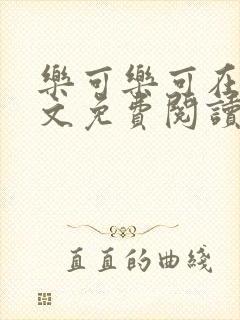 樂可樂可在
文免費閱讀
直直的曲綫